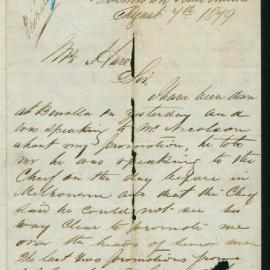 August 7th 1879
Mr Hare
Sir
I have been down
at Benalla on yesterday and
was speaking to Mr Nicolson
about my promotion, he told
me he was speaking to the
Chief on the day before in
Melbourne and that the Chief
said he could not see his
way clear to promote me
over the heads of senior men
The last two promotions from